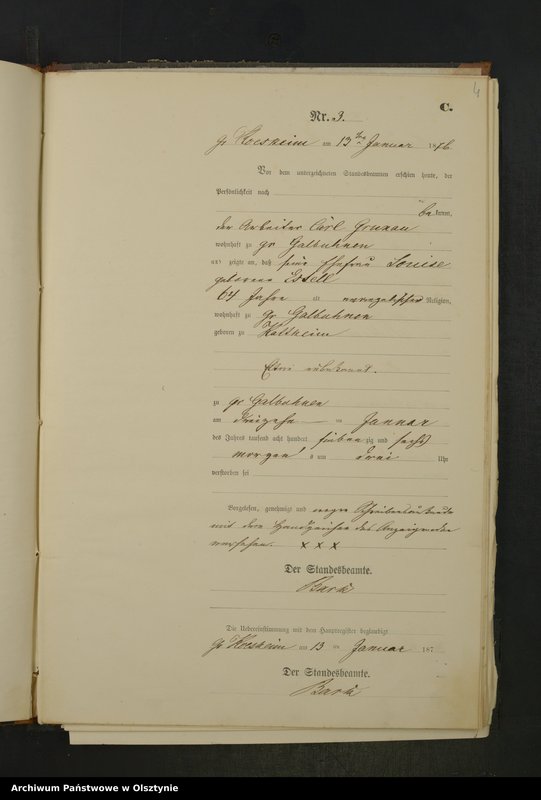 4
C.
Nr. 3.
gr. am 13ten Januar 1876.
Vor dem unterzeichneten Standesbeamten erschien heute, der
Persönlichkeit nach
bekannt,
der Arbeiter Carl Grunau
wohnhaft zu gr. Galbuhnen
und zeigte an, daß seine Ehefrau Louise
geborene Essell
64 Jahre alt evangelischer Religion,
wohnhaft zu gr. Galbuhnen
geboren zu
unbekannt.
zu gr. Galbuhnen
am dreizehn ten Januar
des Jahres tausend acht hundert siebenzig und sechs
morgens um drei Uhr
verstorben sei
Vorgelesen, genehmigt und wegen
mit dem Handzeichen des Anzeigenden
versehen. x x x
Der Standesbeamte.
Die Uebereinstimmung mit dem Hauptregister beglaubigt
gr. am 13 ten Januar 187
Der Standesbeamte.
Archiwum Państwowe w Olsztynie